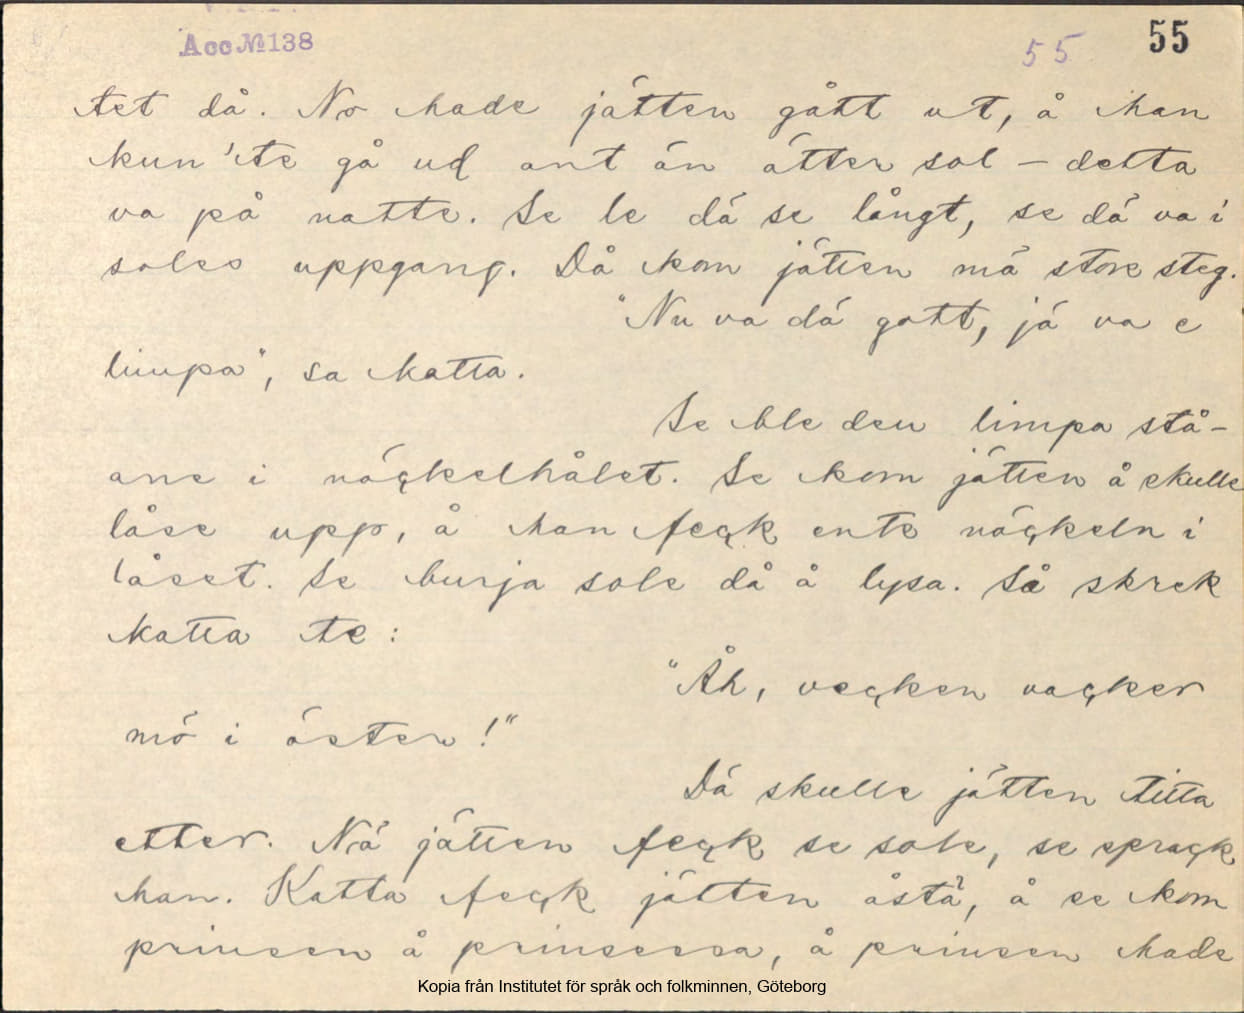 Acc № 138
55 55
tet då. No hade jätten gått ut, å han
kun'te gå ud ant än ätter sol – detta
va på natte. Se le dä se långt, se dä va i
soles uppgang. Då kom jätten mä store steg.
"Nu va dä gott, jä va e
limpa", sa katta.
Se ble den limpa stå-
ane i nöçkelhålet. Se kom jätten å skulle
låse upp, å han feçk ente nöçkeln i
låset. Se burja sole då å lysa. Så skrek
katta te:
"Åh, veçken vaçker
mö i öster!"
Dä skulle jätten titta
etter. Nä jätten feçk se sole, se spraçk
han. Katta feçk jätten åstä, å se kom
prinsen å prinsessa, å prinsen hade
Kopia från Institutet för språk och folkminnen, Göteborg